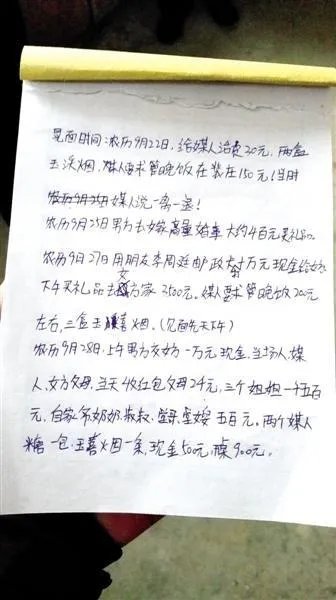 见面时间:农历9月22日,给媒人治费20元,两盒
玉溪烟,媒人要求管晚饭在裴庄150元(当时
农历9月25日媒人说一离一退!
农历9月25日男方去嫁商量婚事大约4百元买礼品。
农历9月27日用朋友李周延邮政卡取1万元现金给
下午买礼品去女方家3500元。媒人要求管晚饭200元
左右,三盒玉喜烟。(见面先天下午)
农历9月28日:上午男方交女方一万元现金,当场人,媒
人、女方父母,当天收红包父母24元,三个姐姐一千五百
元,自家爷奶奶,叔叔,堂哥,堂嫂五百元。两个媒人
糖一包,玉喜烟一条,现金50元,桌900元。